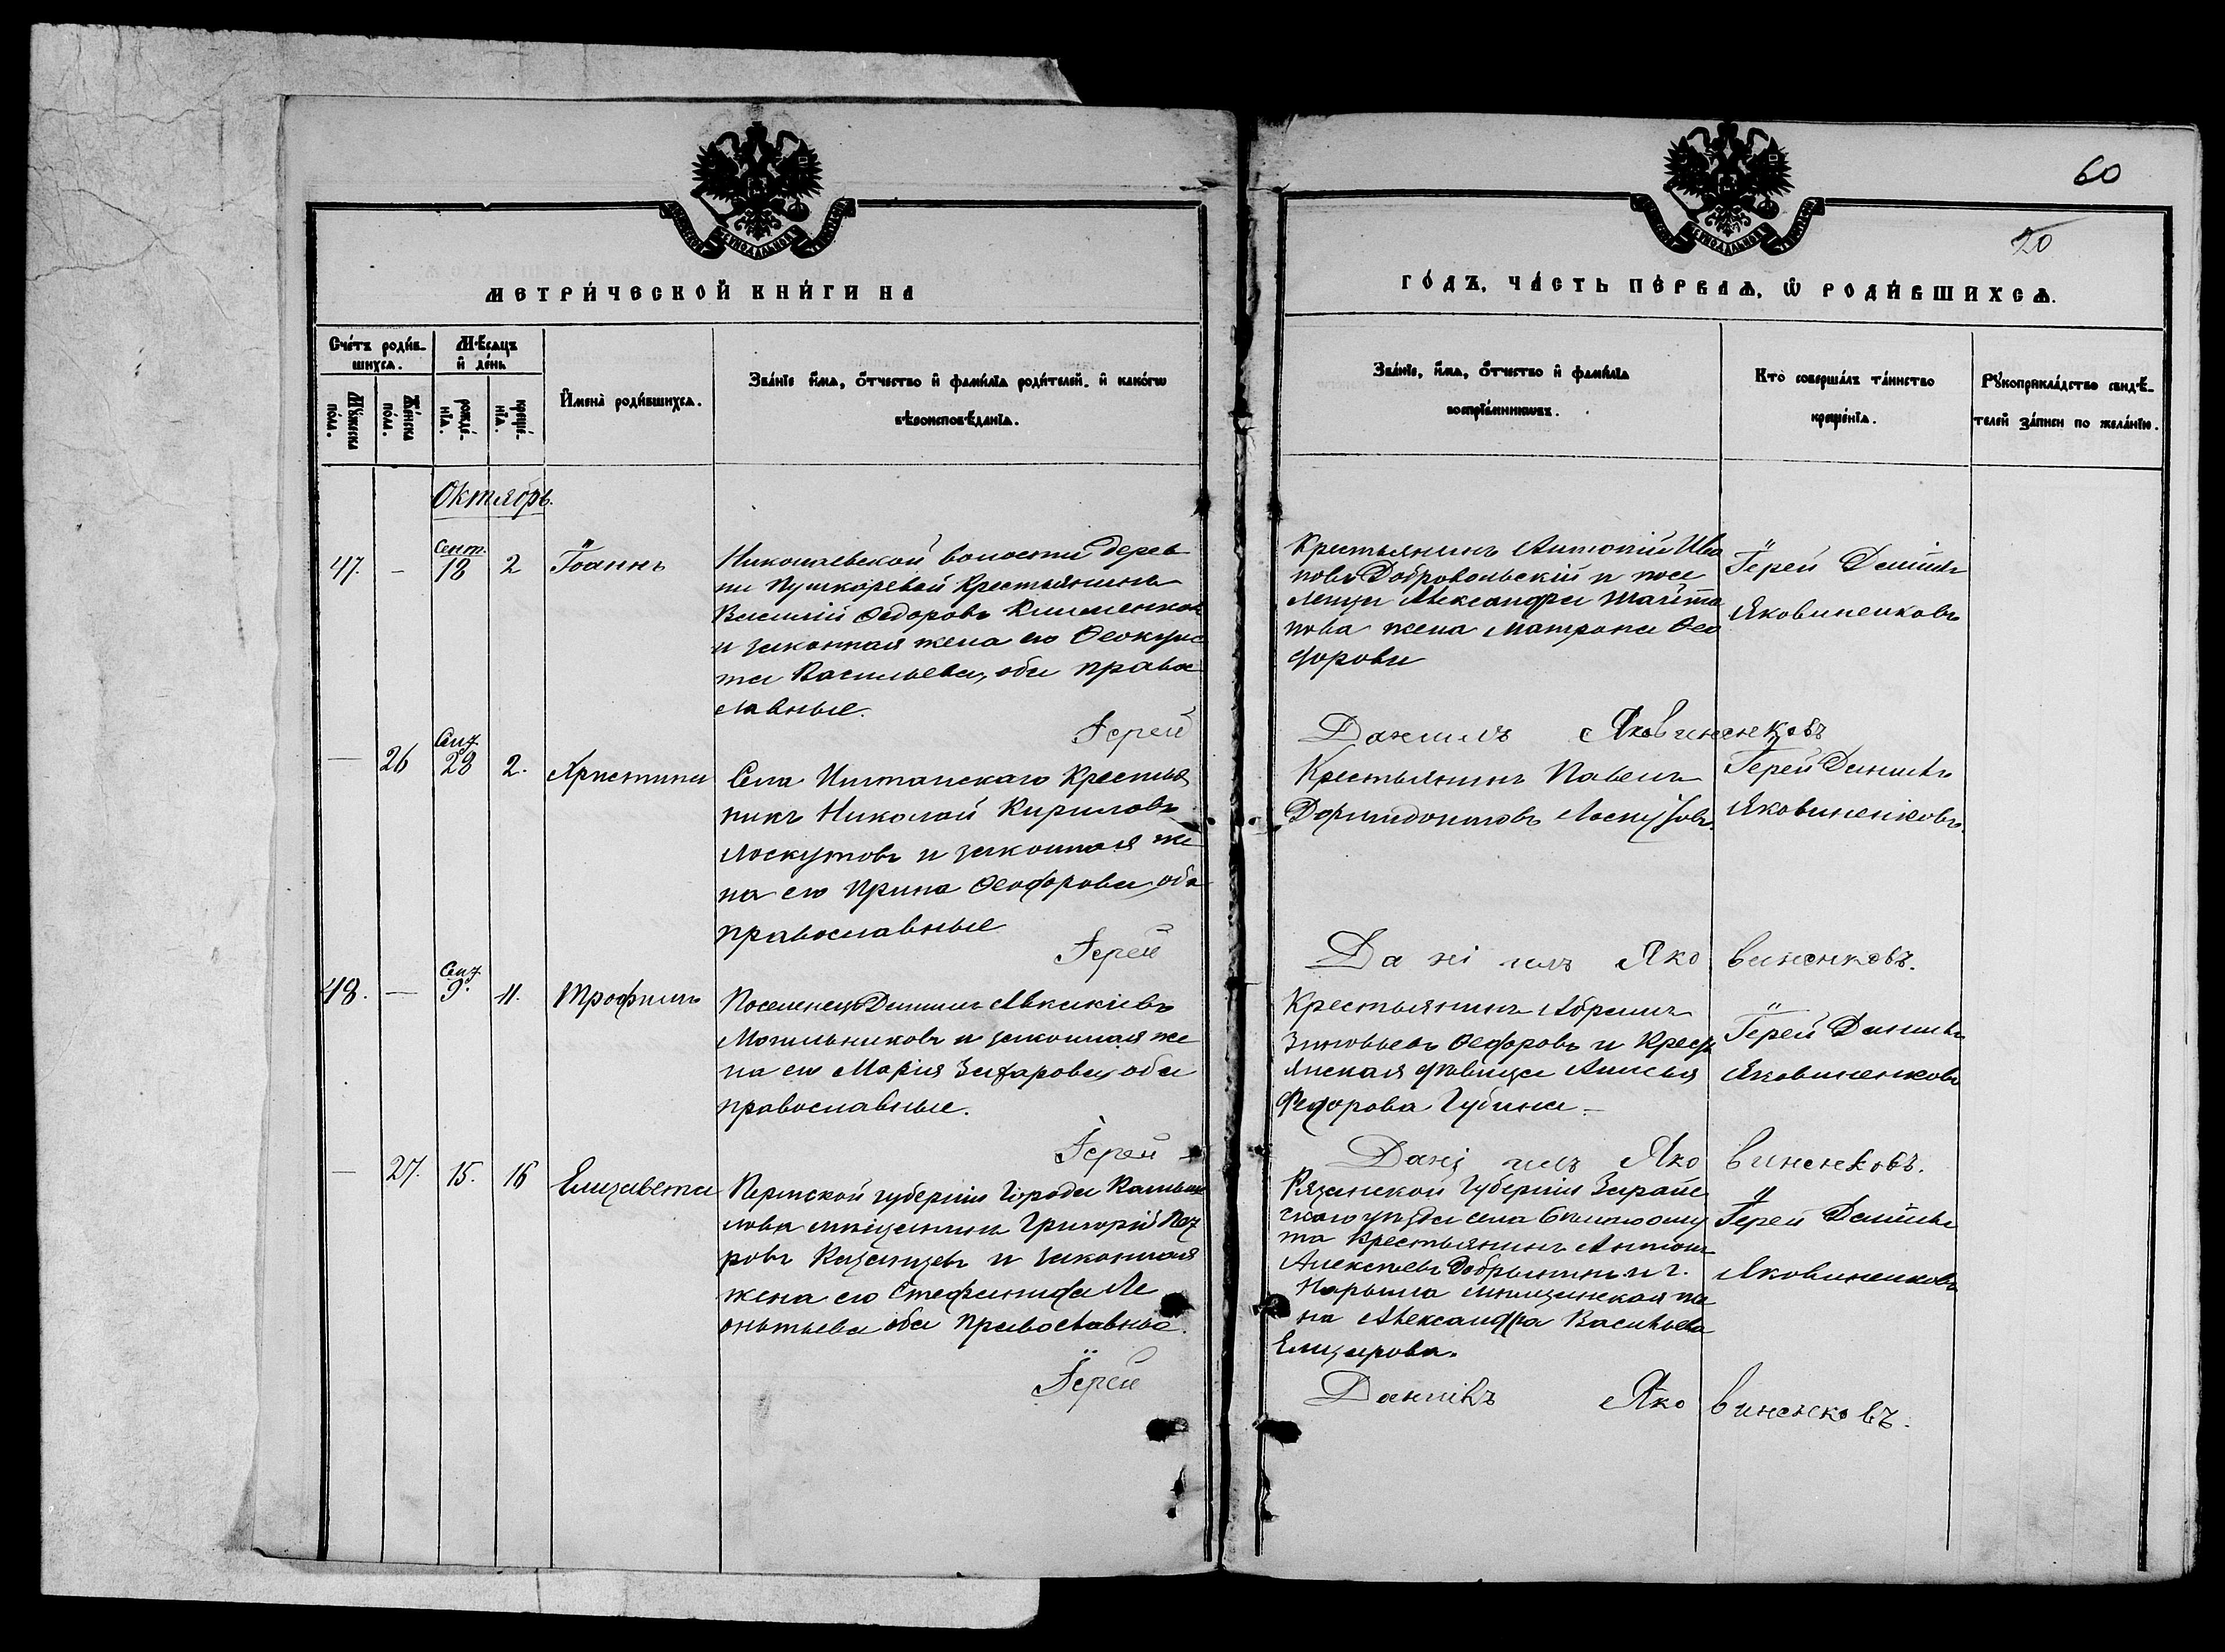 60
20
МЕТРИ́ЧЕСКОЙ КНИ́ГИ НА
ГО́ДЪ, ЧА́СТЬ ПЕ́РВАѦ, Ѽ РОДИ́ВШИХСѦ.
Сче́тъ роди́в-
шихсѧ.
Мѣ́сѧцъ
и҆ де́нь
Мꙋ́жеска
по́ла.
Же́нска
по́ла.
рожде́-
нїѧ.
креще́-
нїѧ.
И҆мена̀ роди́вшихсѧ.
Зва́нїе и҆́мѧ, ѻ҆́тчество и҆ фамѝлїѧ роди́телей. и҆ како́гѡ
вѣроисповѣ́данїѧ.
Зва́нїе, и҆́мѧ, ѻ҆́тчество и҆ фамѝлїѧ
воспрїе́мникѡвъ.
Кто̀ соверша́лъ та́инство
креще́нїѧ.
Рꙋкоприкла́дство свидѣ́-
телей за́писи по жела́нїю.
Октябрь.
47. – Сент. 18 2 Іоаннъ
Николаевской волости дерев
ни Пушкаревой Крестьянинъ
Василій Ѳедоровъ Клименков
и законная жена его Ѳеокрис
та Васильева, оба право
славные.
Крестьянинъ Антоній Ива
новъ Добровольскій и посе
ленца Александра
нова жена Матрона Ѳео
дорова
Іерей Даніилъ
Яковиненковъ
Іерей Даніилъ Яковиненковъ
— 26 Сент 28 2. Христина
Села Иштанскаго Крестья
нинъ Николай Кириловъ
Лоскутовъ и законная же
на его Ирина Ѳеодорова, оба
православные
Крестьянинъ Павелъ
Дормидонтовъ Лоскутовъ.
Іерей Даніилъ
Яковиненковъ.
Іерей Даніилъ Яковиненковъ.
48. — Сент 9. 11. Трофимъ
Поселенецъ Даніилъ
Мотыльниковъ и законная же
на его Марія Захарова, оба
православные.
Крестьянинъ Абрамъ
Зиновьевъ Ѳедоровъ и Крест
янская дѣвица Анисья
Федорова Губина. –
Іерей Даніилъ
Яковиненковъ
Іерей Даніилъ Яковиненковъ.
— 27. 15. 16 Елизавета
Пермской губерніи Города Камыш
лова мѣщанинъ Григорій Пет
ровъ Казанцевъ и законная
жена его Стефанида Ле
онтьева оба православные.
Рязанской Губерніи Зарайс
каго уѣзда села
та Крестьянинъ Антонъ
Алексѣевъ Добрынинъ и г.
Нарыма мѣщанская же
на Александра Васильева
Елизарова.
Іерей Даніилъ
Яковиненковъ
Іерей Даниилъ Яковиненковъ.